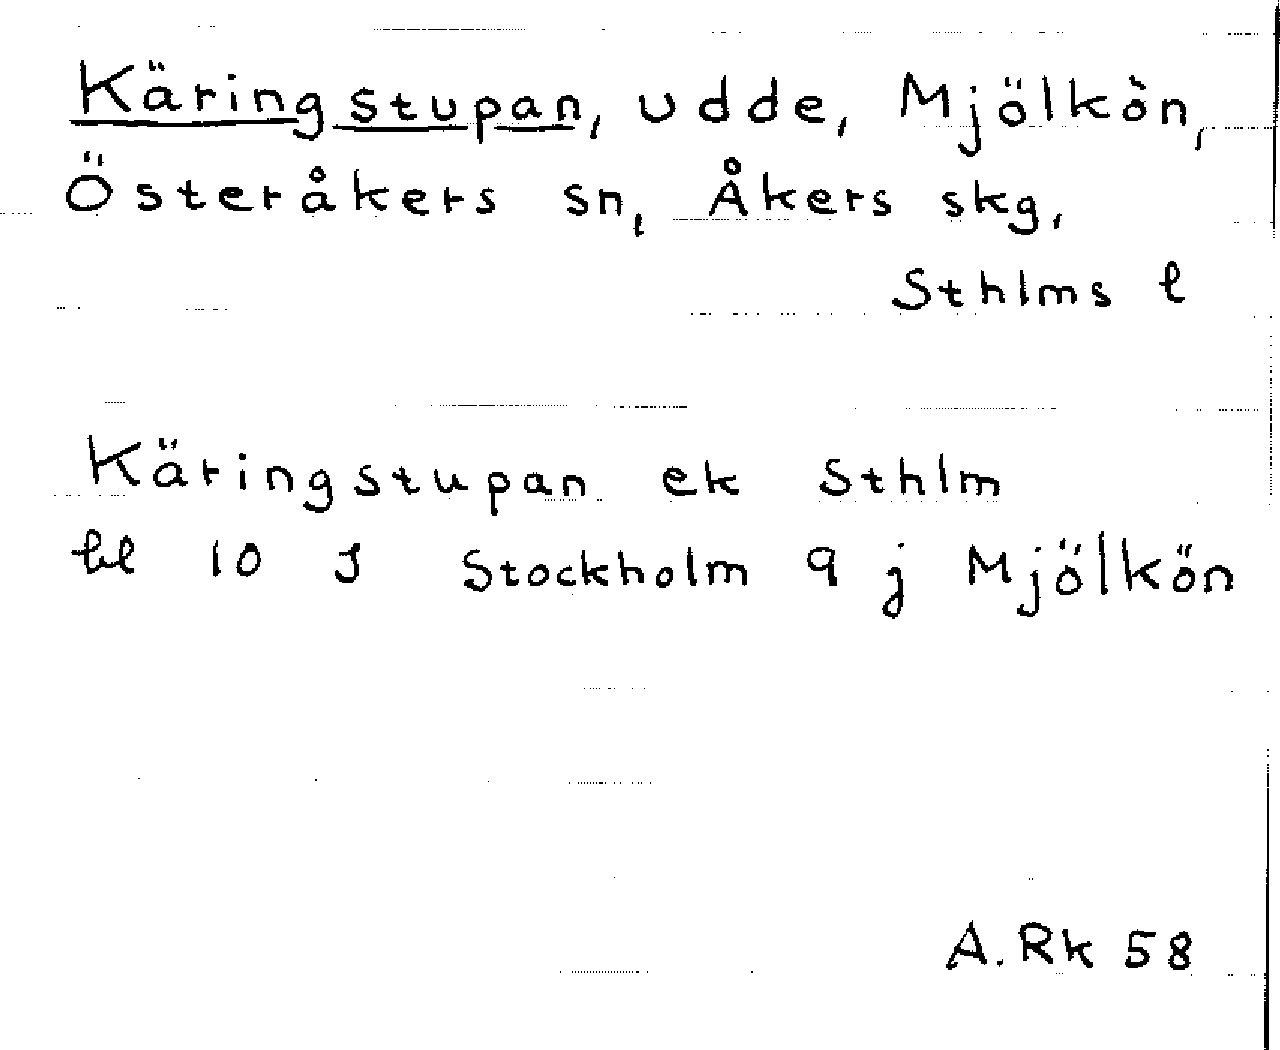 Käringstupan, udde, Mjölkön,
Österåkers sn, Åkers skg,
Sthlms l
Käringstupan ek Sthlm
bl 10 J Stockholm 9 j Mjölkön
A. Rk 58